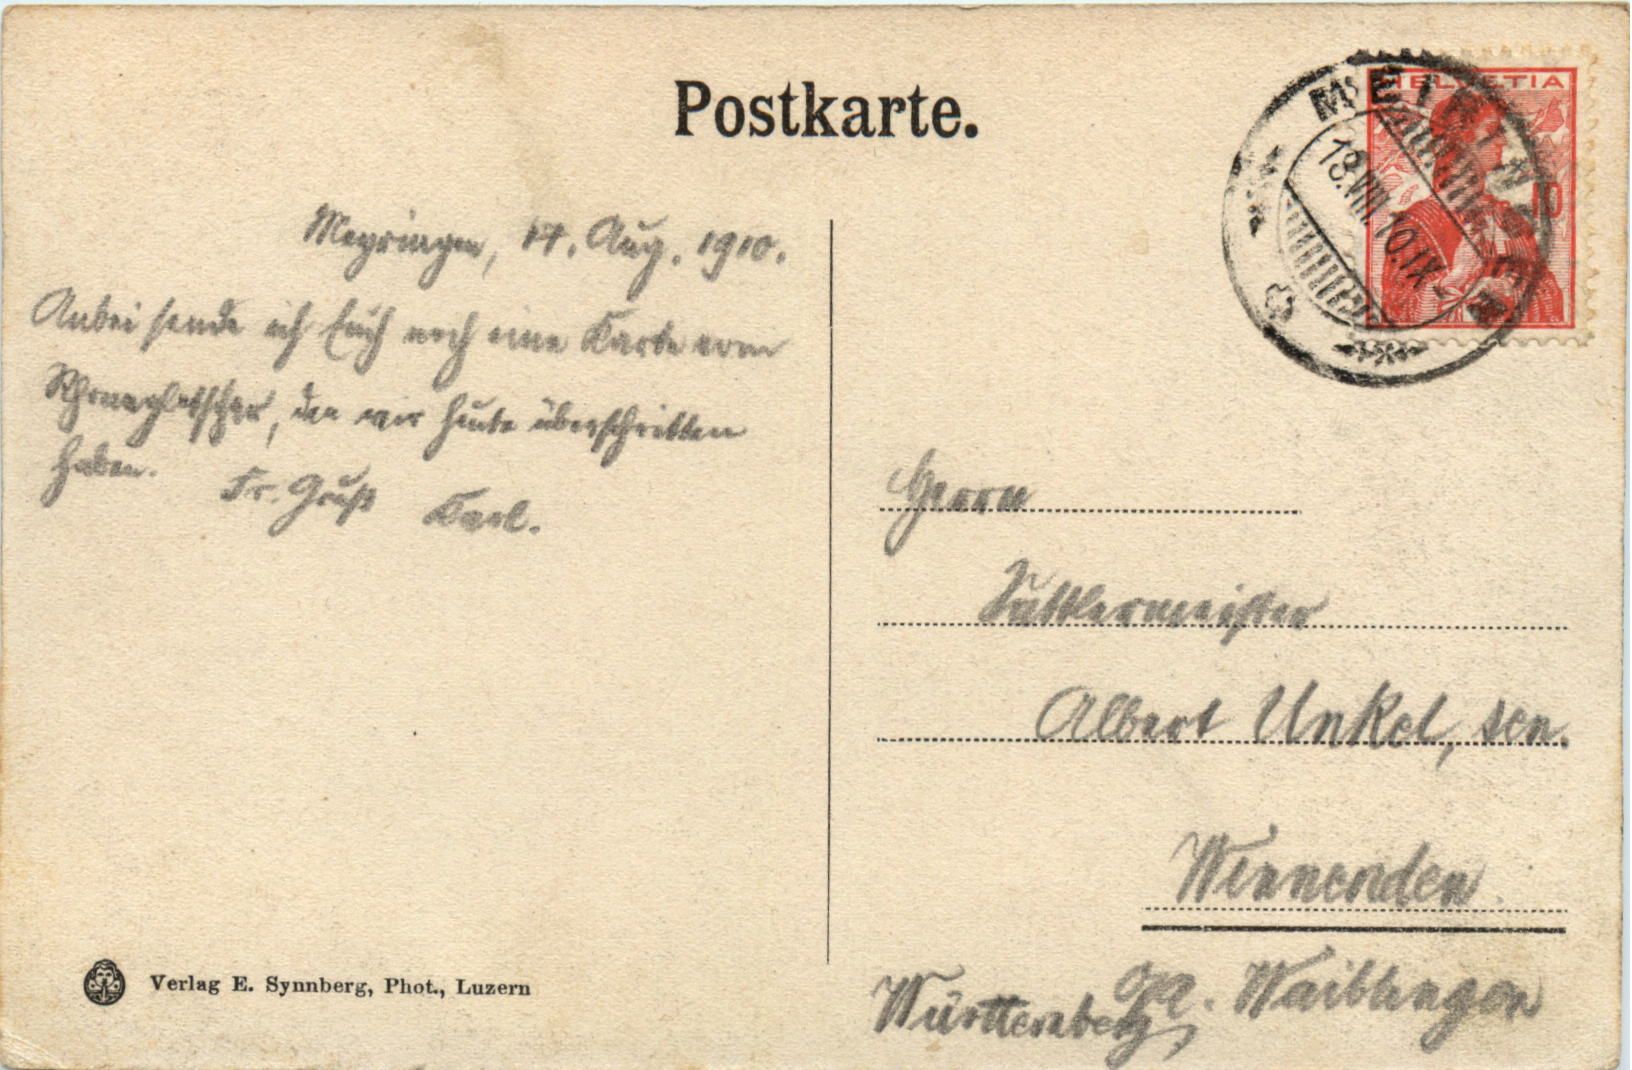 Postkarte.
HELVETIA
MEIRINGEN
18.VIII.10.IX-
10
Meyringen, 17. Aug. 1910.
Anbei sende ich Euch noch eine Karte vom
Rhonegletscher, den wir heute überschritten
haben. Fr. Gruß Karl.
Herrn
Sattlermeister
Albert Unkel, sen.
Winnenden.
OA. Waiblingen
Württemberg,
Verlag E. Synnberg, Phot., Luzern